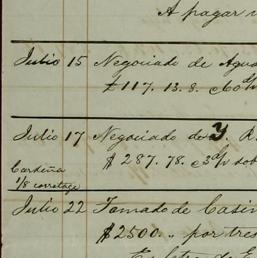 A pagar
Julio 15 Negociado de Agus
£ 117. 13. 8. c60 d/
Julio 17 Negociado de Y. R.
$ 287. 78. c3 d/ sob
Cardeña
1/8 corretage
Julio 22 Tomado de Casim
$ 2500. „ por tres